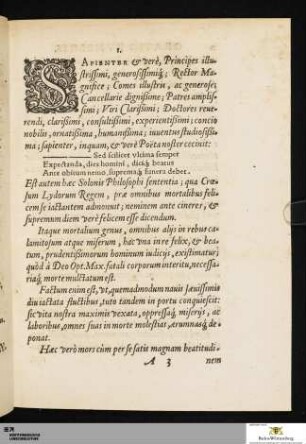 1.
SAPIENTER & verè, Principes illu-
strissimi, generosissimiq́; Rector Ma-
gnifice; Comes illustris, ac generose;
Cancellarie dignissime; Patres amplis-
simi; Viri Clarissimi; Doctores reue-
rendi, clarissimi, consultissimi, experientissimi; concio
nobilis, ornatissima, humanissima; iuuentus studiosissi-
ma; sapienter, inquam, & verè Poëta noster cecinit:
Sed scilicet vltima semper
Expectanda, dies homini, diciq́ beatus
Ante obitum nemo, supremaq́ funera debet.
Est autem hæc Solonis Philosophi sententia; qua Crœ-
sum Lydorum Regem, præ omnibus mortalibus felí-
cem se iactantem admonuit; neminem ante cineres, &
supremum diem verè felicem esse dicendum.
Itaque mortalium genus, omnibus alijs in rebus ca-
lamitosum atque miserum, hac vna in re felix, & bea-
tum, prudentissimorum hominum iudicijs, existimatur;
quòd à Deo Opt. Max. fatali corporum interitu, necessa-
riaq́; morte mulctatum est.
Factum enim est, vt, quemadmodum nauis sæuissimis
diu iactata fluctibus, tuto tandem in portu conquiescit:
sic vita nostra maximis vexata, oppressaq́; miserijs, ac
laboribus, omnes suas in morte molestias, ærumnasq́; de-
ponat.
Hæc verò mors cùm per se satis magnam beatitudi-
A 3
nem
Baden-Württemberg